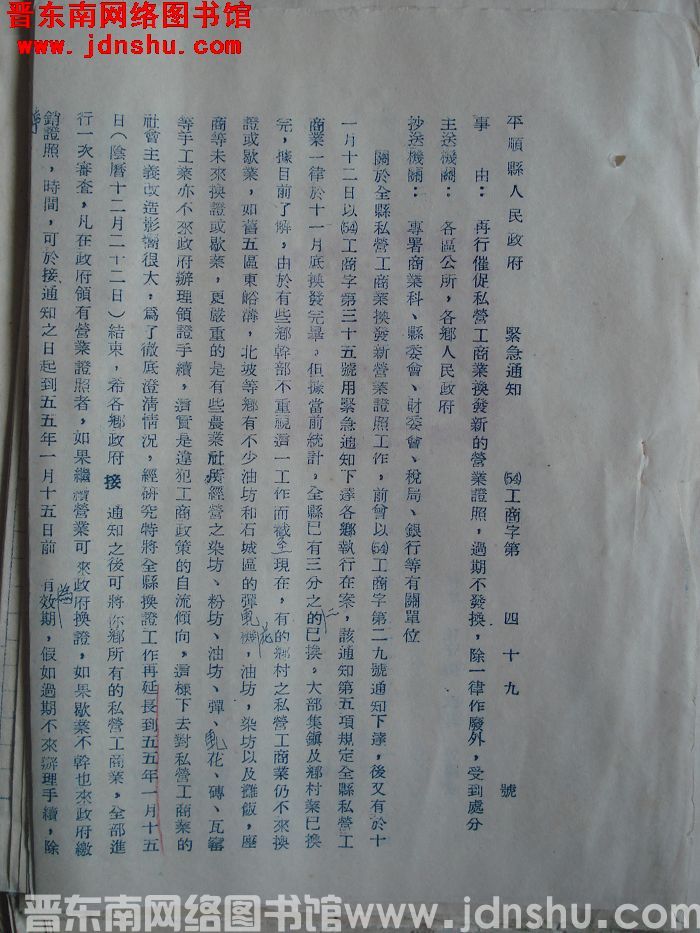 晋东南网络图书馆
www.jdnshu.com
平順縣人民政府 緊急通知 (54)工商字第 四十九 號
事 由： 再行催促私營工商業換發新的營業證照，過期不發換，除一律作廢外，受到處分
主送機關： 各區公所，各鄉人民政府
抄送機關： 專署商業科、縣委會、財委會、稅局、銀行等有關單位
關於全縣私營工商業換發新營業證照工作，前會以(54)工商字第二九號通知下達，後又有於十
一月十二日以(54)工商字第三十五號用緊急通知下達各鄉執行在案，該通知第五項規定全縣私營工
商業一律於十一月底換發完畢。但據當前統計，全縣已有三分之二的已換，大部集鎮及鄉村業已換
完，據目前了解，由於有些鄉幹部不重視這一工作而截至現在，有的鄉村之私營工商業仍不來換
證或歇業，如舊五區東峪溝，北坡等鄉有不少油坊和石城區的彈軋花，油坊，染坊以及攤飯，座
商等未來換證或歇業，更嚴重的是有些農業社所經營之染坊、粉坊、油坊、彈、軋花、磚、瓦窰
等手工業亦不來政府辦理領證手續，這實是違犯工商政策的自流傾向，這樣下去對私營工商業的
社會主義改造影響很大，爲了徹底澄清情況，經研究特將全縣換證工作再延長到五五年一月十五
日（陰曆十二月二十二日）結束，希各鄉政府 接 通知之後可將你鄉所有的私營工商業，全部進
行一次審查，凡在政府領有營業證照者，如果繼續營業可來政府換證，如果歇業不幹也來政府繳
銷證照，時間，可於接通知之日起到五五年一月十五日前爲有效期，假如過期不來辦理手續，除
晋东南网络图书馆 www.jdnshu.com